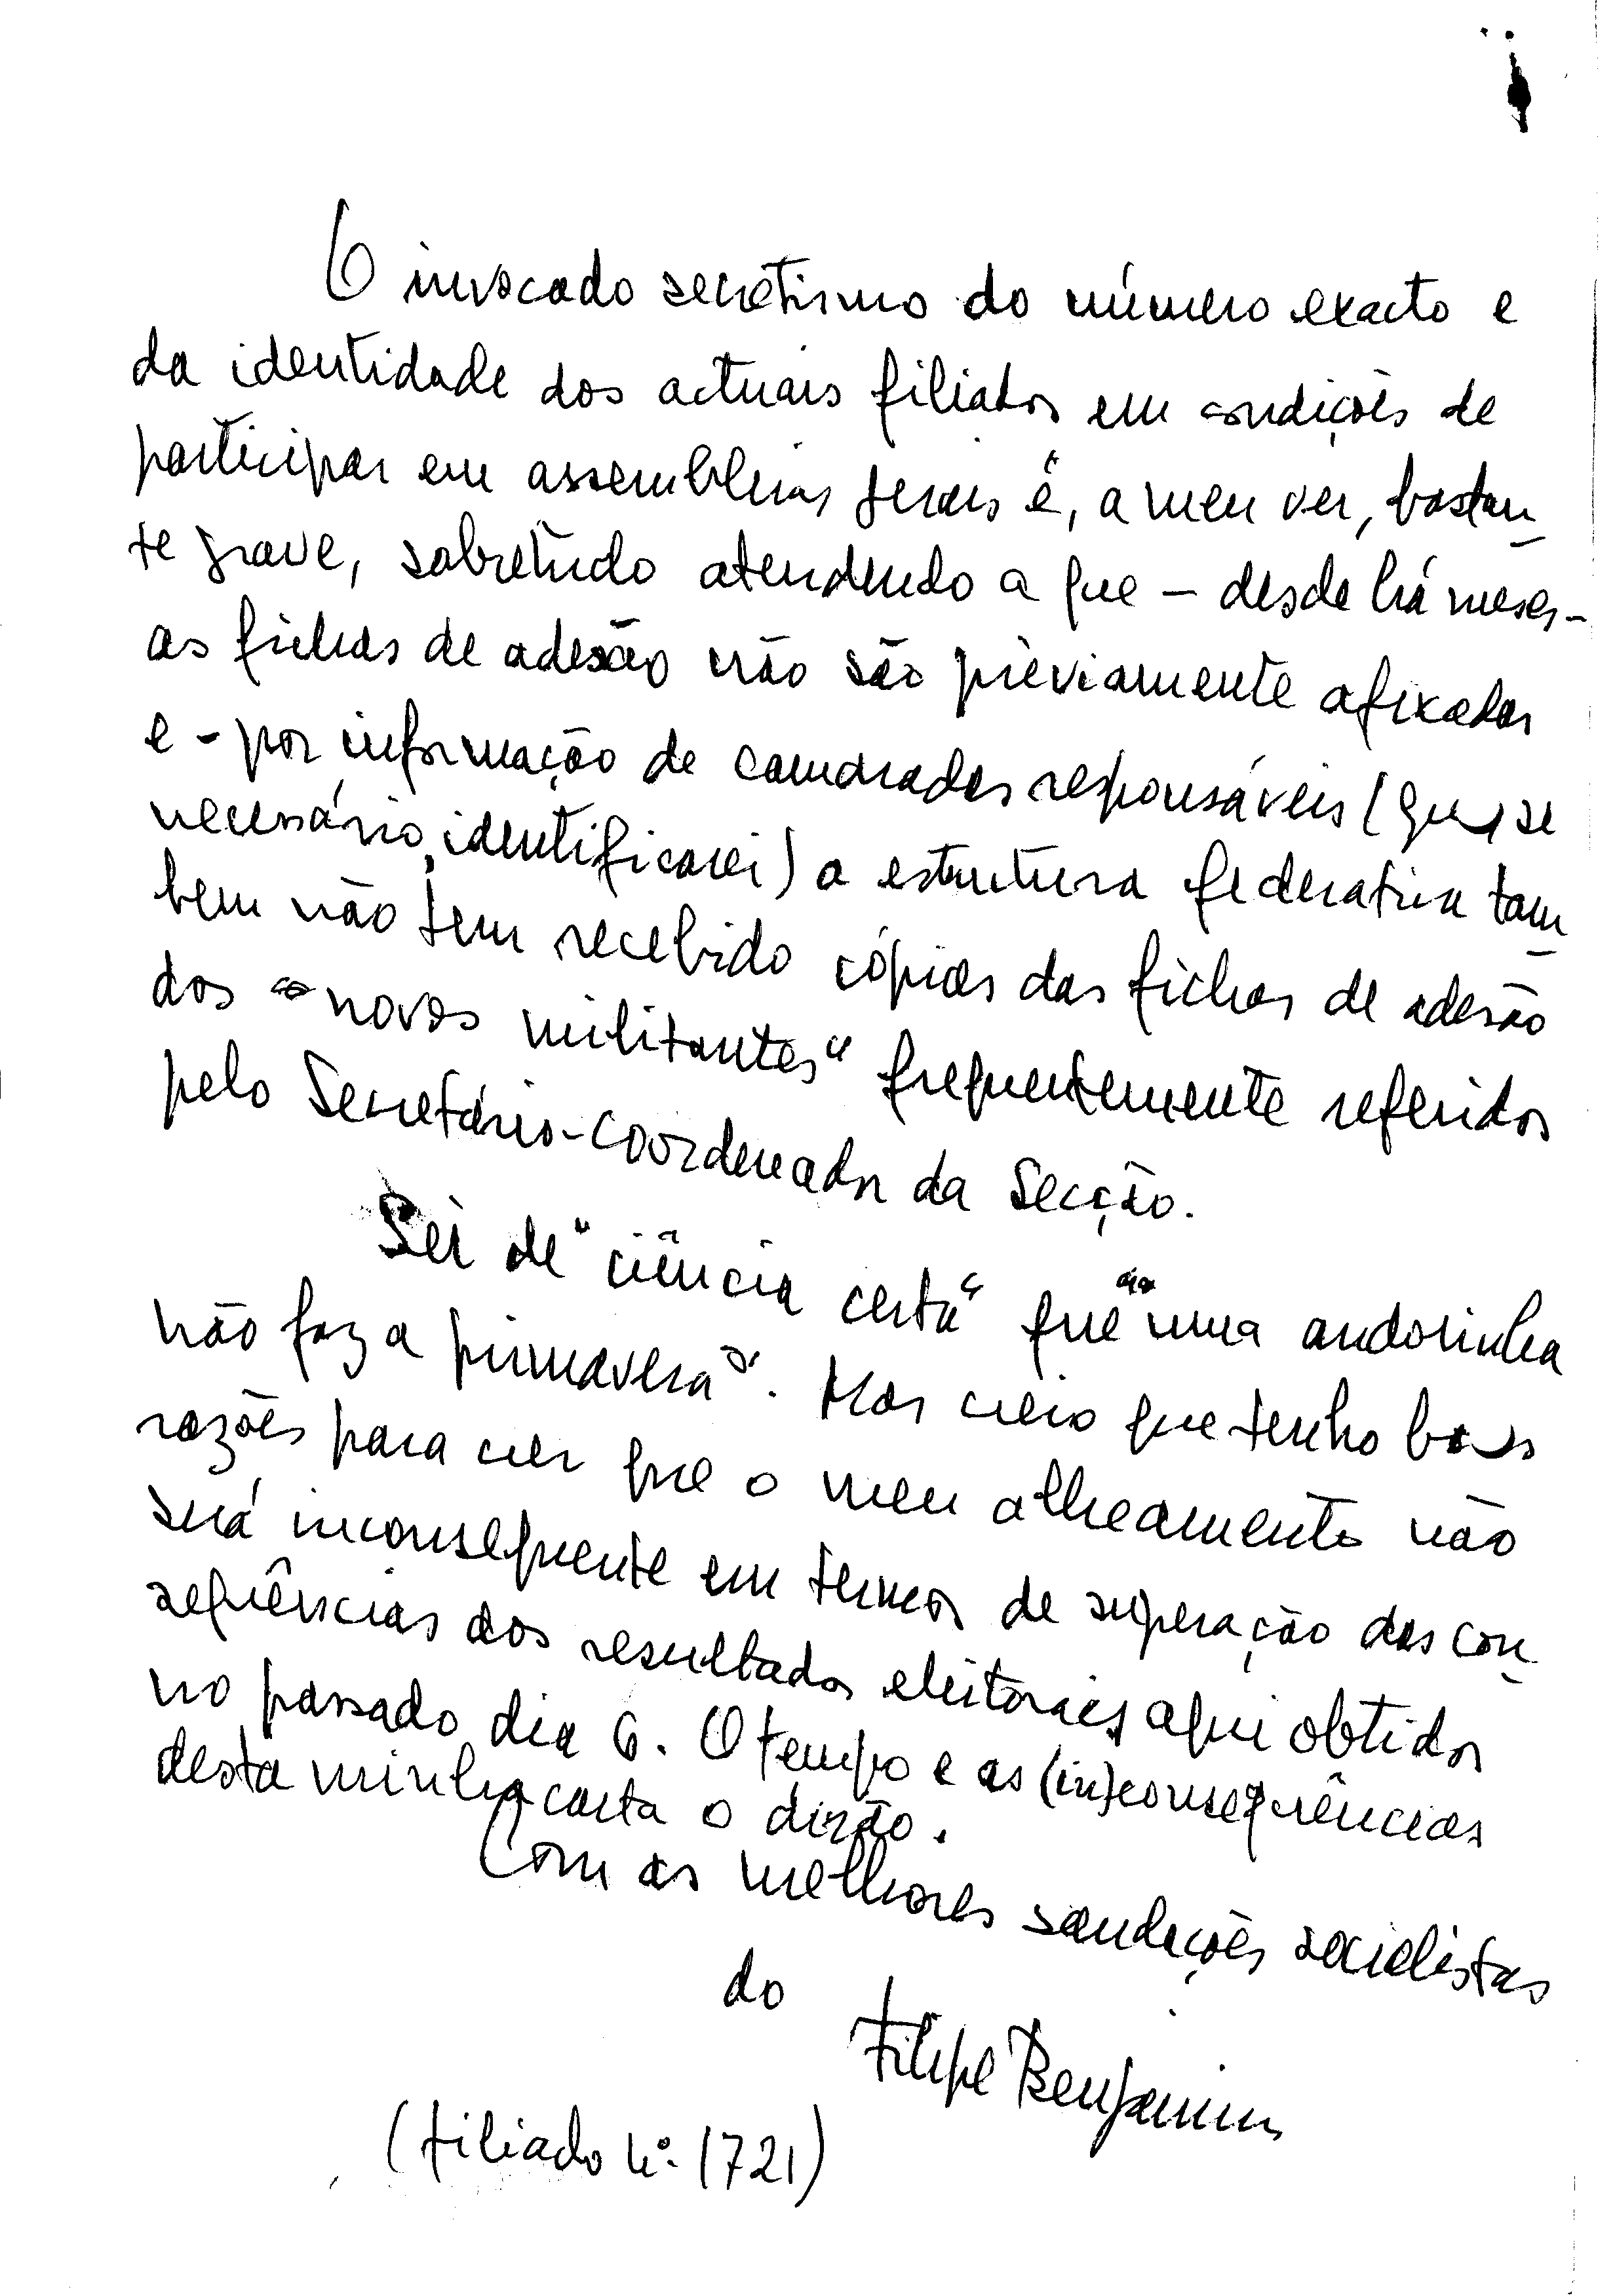 O invocado secretismo do número exacto e
da identidade dos actuais filiados em condições de
participar em assembleias gerais é, a meu ver, bastan-
te grave, sobretudo atendendo a que - desde há meses -
as fichas de adesão não são préviamente afixadas
e - por informação de camaradas responsáveis (que, se
necessário, identificarei) a estrutura federativa tam-
bem não tem recebido cópias das fichas de adesão
dos "novos militantes" frequentemente referidos
pelo Secretário-Coordenador da Secção.
Sei de "ciência certa" que "uma andorinha
não faz a primavera". Mas creio que tenho boas
razões para crer que o meu alheamento não
será inconsequente em termos de superação das con-
sequências dos resultados eleitorais aqui obtidos
no passado dia 6. O tempo e as (in)consequências
desta minha carta o dirão.
Com as melhores saudações socialistas
do
Filipe Benjamim
(filiado nº 1721)